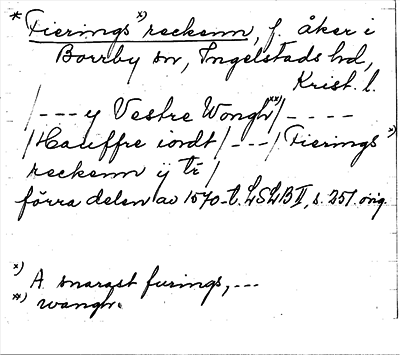 * Fierings *) reckenn, f. åker i
Borrby sn, Ingelstads hd,
Krist. l.
/--- y Vestre Wongh **)/- - - - -
/Hauffre iordt/---/Fierings *)
reckenn ÿ tr/
förra delen av 1570-t. LSLB II, s. 251. orig.
*) A. snarast furings, ---
**) wangh.